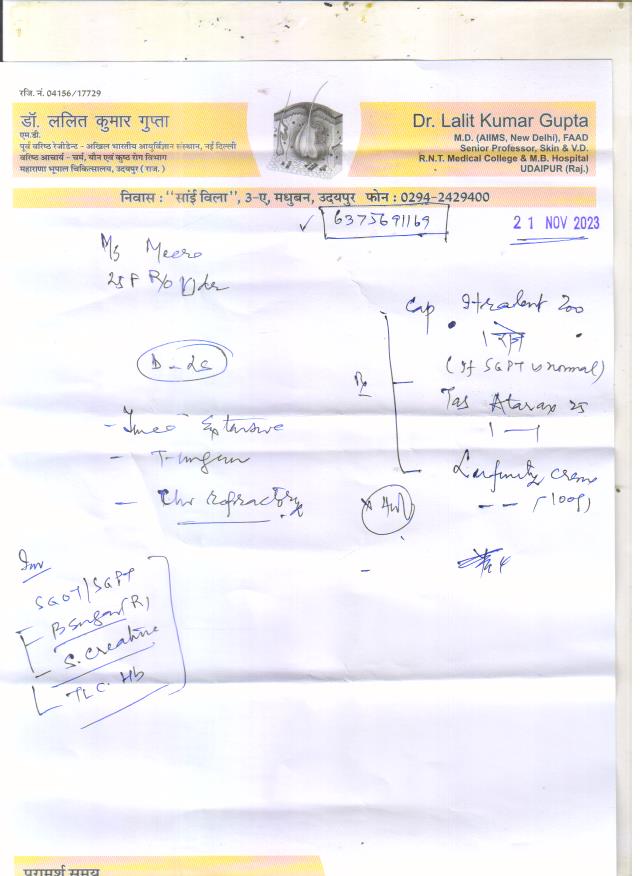 रजि. नं. 04156/17729
डॉ. ललित कुमार गुप्ता
एम.डी.
पूर्व वरिष्ठ रेजीडेन्ट - अखिल भारतीय आयुर्विज्ञान संस्थान, नई दिल्ली
वरिष्ठ आचार्य - चर्म, यौन एवं कुष्ठ रोग विभाग
महाराणा भूपाल चिकित्सालय, उदयपुर (राज.)
Dr. Lalit Kumar Gupta
M.D. (AIIMS, New Delhi), FAAD
Senior Professor, Skin & V.D.
R.N.T. Medical College & M.B. Hospital
UDAIPUR (Raj.)
निवास : "सांई विला", 3-ए, मधुबन, उदयपुर फोन : 0294-2429400
6375691169
21 NOV 2023
Ms Meera
25 F R/o
Cap 200
(If SGPT is normal)
Tab Atarax 25
1 — 1
Extensive
Chr refractory
cream
(100g)
Inv
SGOT/SGPT
B Sugar (R)
S. Creatine
TLC. Hb
परामर्श समय